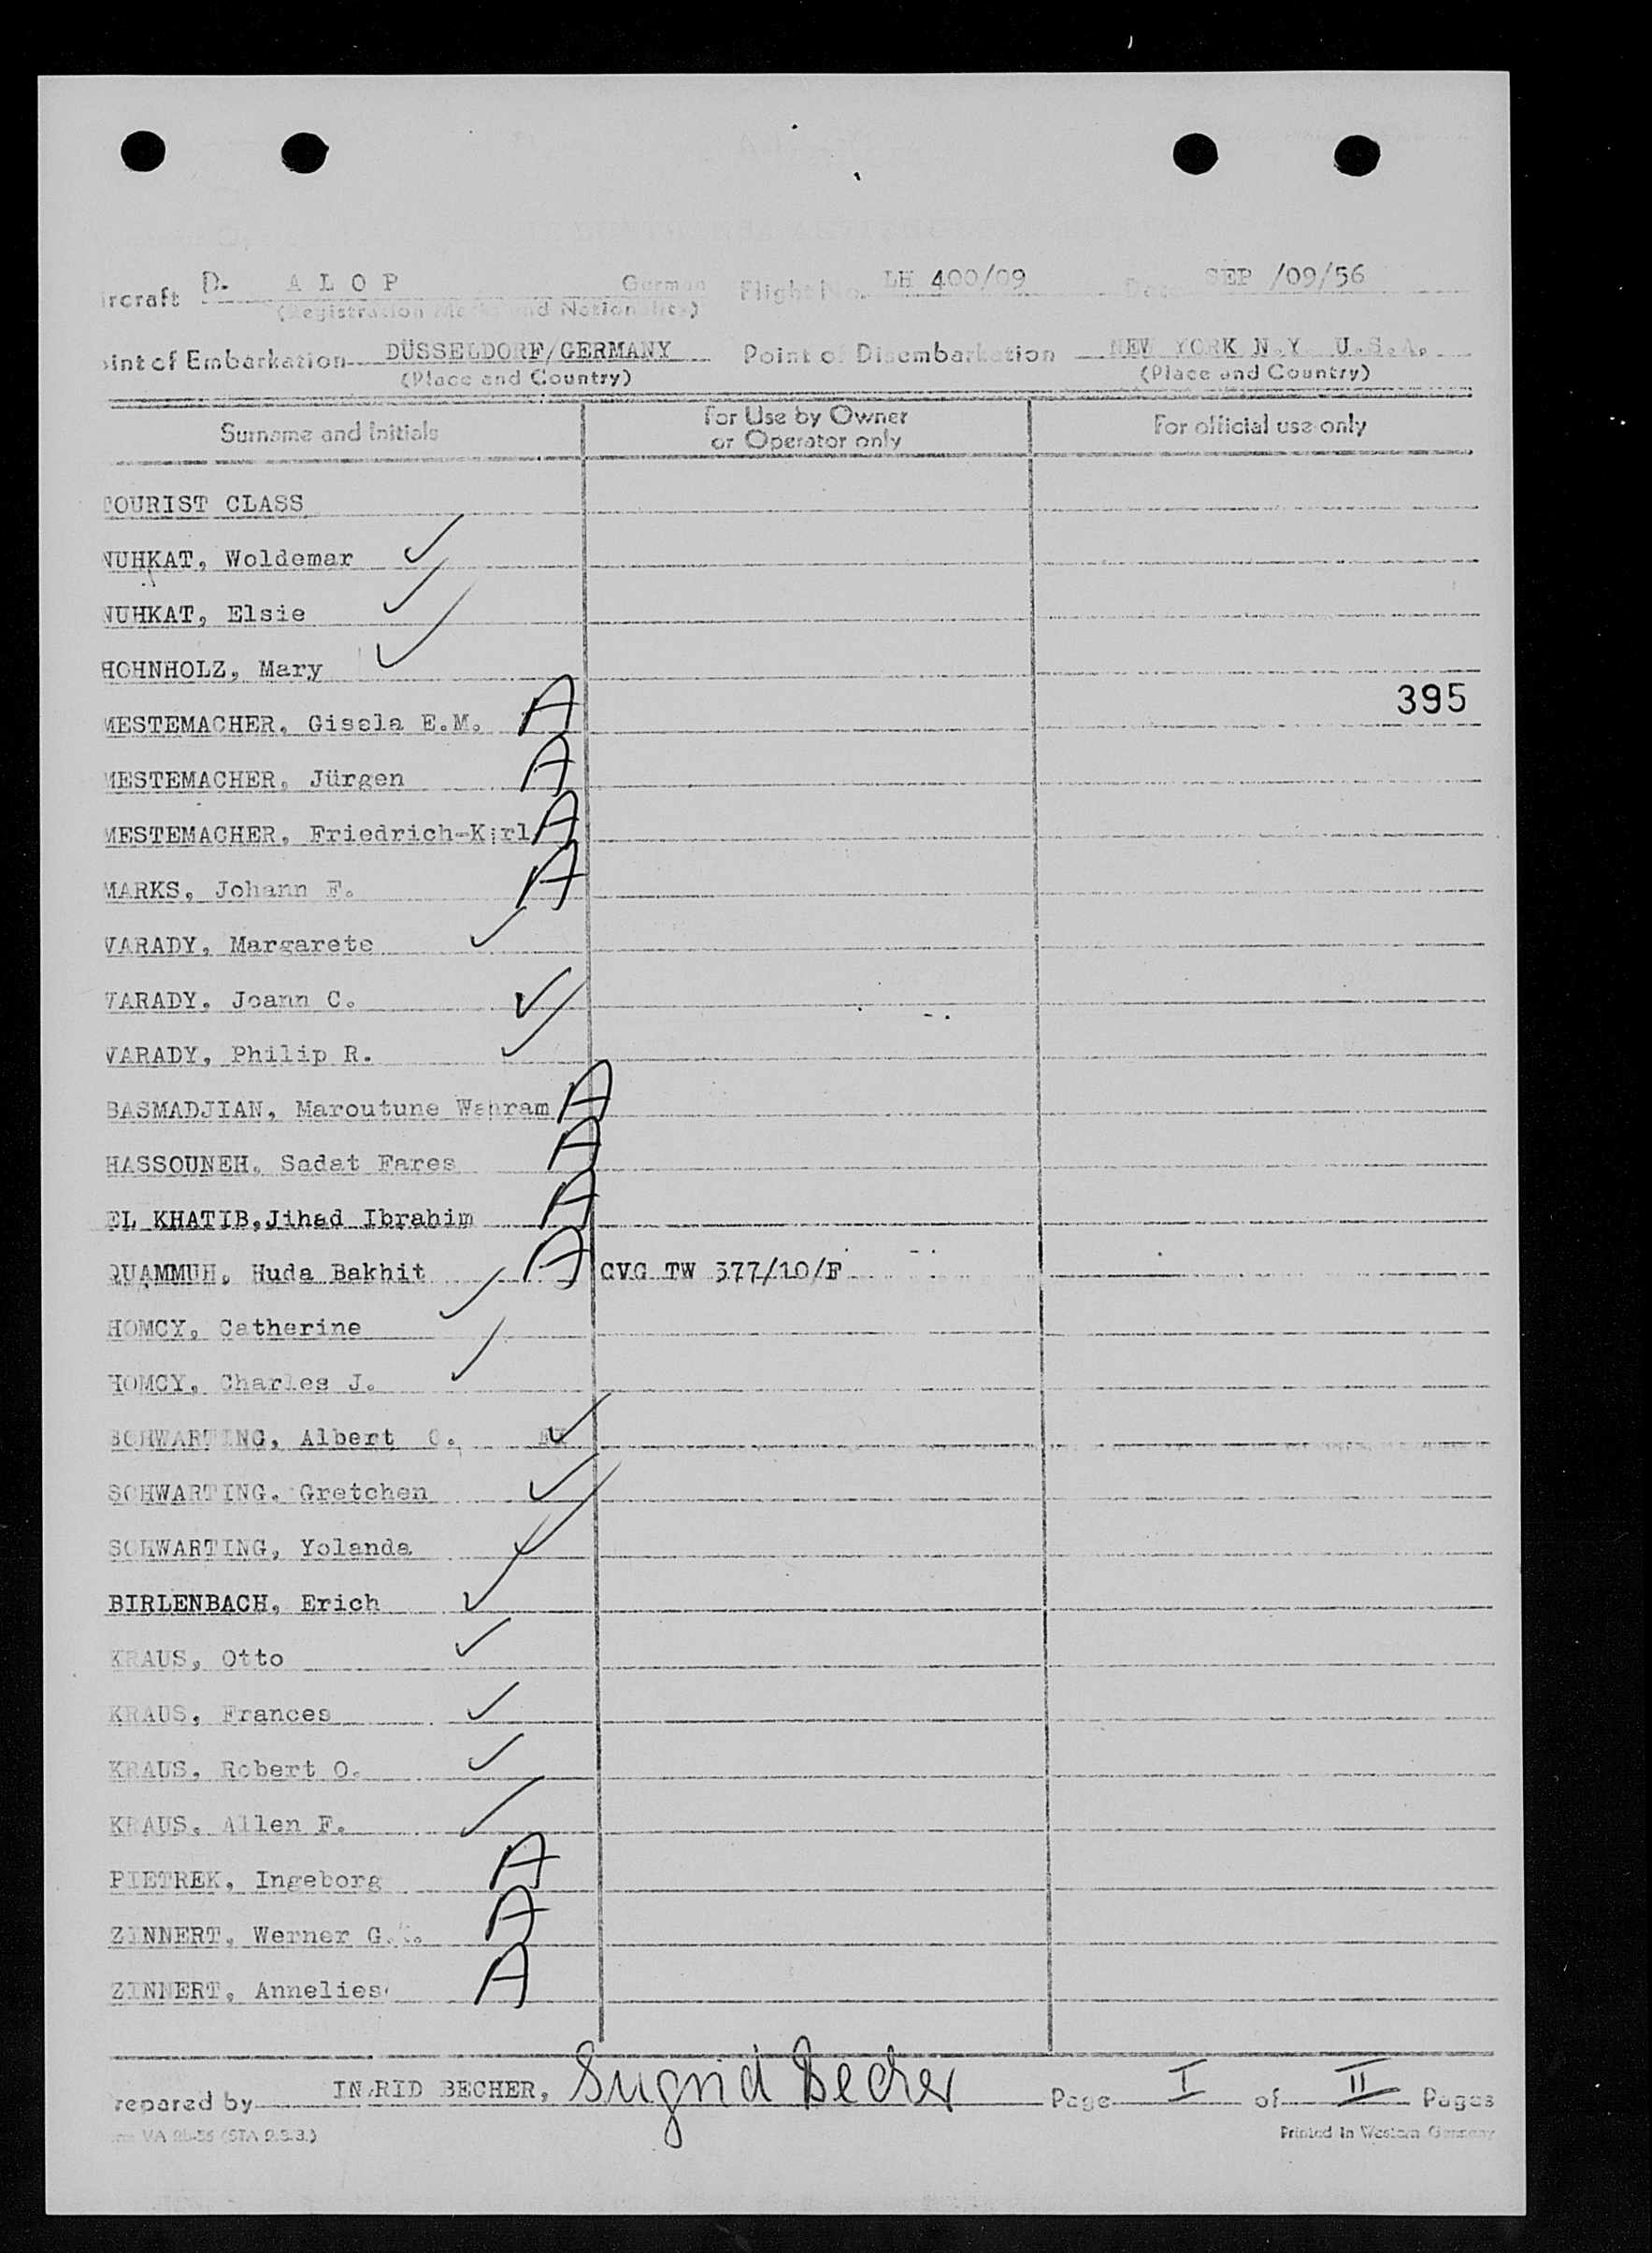 ircraft D- A L O P German Flight No. LH 400/09 Date SEP /09/56
(Registration Marks and Nationalities)
oint of Embarkation DÜSSELDORF/GERMANY Point of Disembarkation NEW YORK N.Y. U.S.A.
(Place and Country) (Place and Country)
Surname and Initials For Use by Owner or Operator only For official use only
TOURIST CLASS
NUHKAT, Woldemar ✓
NUHKAT, Elsie ✓
HOHNHOLZ, Mary ✓
395
MESTEMACHER, Gisela E.M. A
MESTEMACHER, Jürgen A
MESTEMACHER, Friedrich-Karl A
MARKS, Johann F. A
VARADY, Margarete ✓
VARADY, Joann C. ✓
VARADY, Philip R. ✓
BASMADJIAN, Maroutune Wahram A
HASSOUNEH, Sadat Fares A
EL KHATIB,Jihad Ibrahim A
QUAMMUH, Huda Bakhit A CVG TW 377/10/F
HOMCY, Catherine ✓
HOMCY, Charles J. ✓
SCHWARTING, Albert C. ✓
SCHWARTING, Gretchen ✓
SCHWARTING, Yolanda ✓
BIRLENBACH, Erich ✓
KRAUS, Otto ✓
KRAUS, Frances ✓
KRAUS, Robert O. ✓
KRAUS, Allen F. ✓
PIETREK, Ingeborg A
ZINNERT, Werner G. A
ZINNERT, Anneliese A
repared by INGRID BECHER, Ingrid Becher Page I of II Pages
VA 2b-55 (STA 9.3.3.) Printed in Western Germany